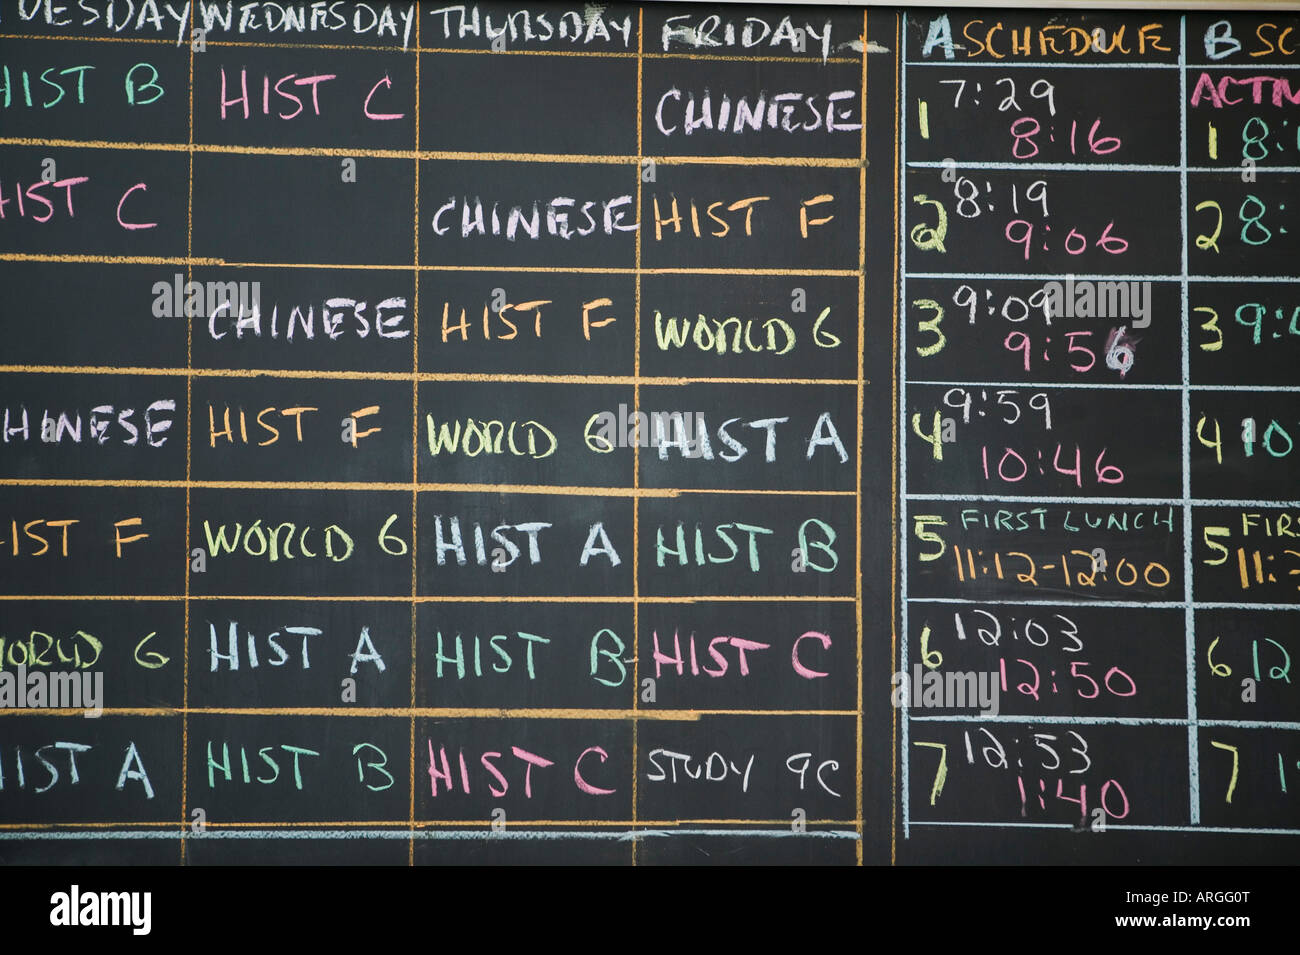 TUESDAY WEDNESDAY THURSDAY FRIDAY A SCHEDULE B SC
HIST B HIST C CHINESE 1 7:29 8:16 ACTIV 1 8:1
HIST C CHINESE HIST F 2 8:19 9:06 2 8:
CHINESE HIST F WORLD 6 3 9:09 9:56 3 9:4
CHINESE HIST F WORLD 6 HIST A 4 9:59 10:46 4 10
HIST F WORLD 6 HIST A HIST B 5 FIRST LUNCH 11:12-12:00 5 FIRS 11:3
WORLD 6 HIST A HIST B HIST C 6 12:03 12:50 6 12
HIST A HIST B HIST C STUDY 9C 7 12:53 1:40 7 1
alamy
Image ID: ARGG0T
www.alamy.com